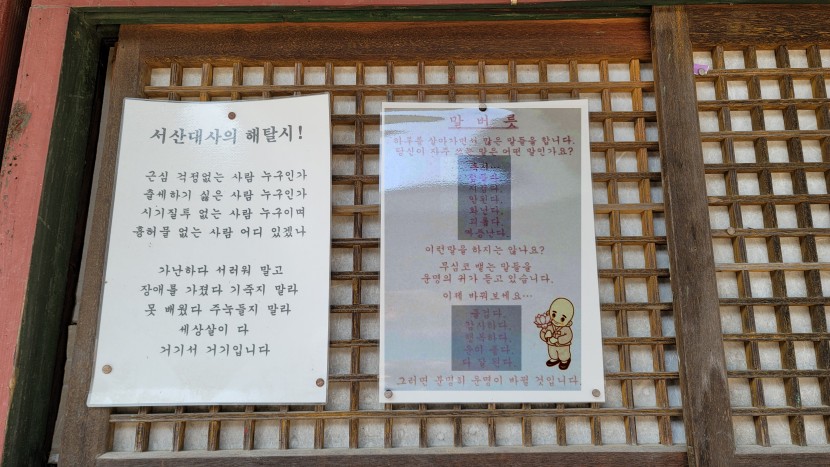 서산대사의 해탈시!
근심 걱정없는 사람 누구인가
출세하기 싫은 사람 누구인가
시기질투 없는 사람 누구이며
흉허물 없는 사람 어디 있겠나
가난하다 서러워 말고
장애를 가졌다 기죽지 말라
못 배웠다 주눅들지 말라
세상살이 다
거기서 거기입니다
말 버 릇
하루를 살아가면서 많은 말들을 합니다.
당신이 자주 쓰는 말은 어떤 말인가요?
안된다.
화난다.
괴롭다.
짜증난다.
이런말을 하지는 않나요?
무심코 뱉는 말들을
운명의 귀가 듣고 있습니다.
이제 바꿔보세요…
즐겁다.
감사하다.
행복하다.
운이 좋다.
다 잘 된다
그러면 분명히 운명이 바뀔 것입니다.